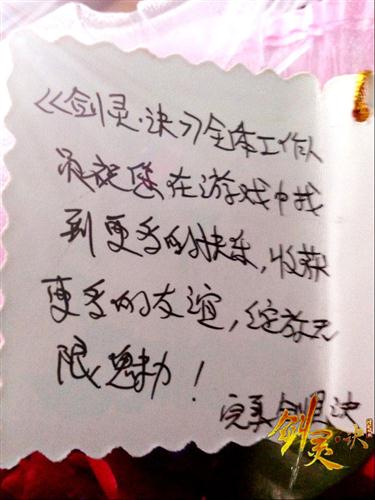 《剑灵·诀》全体工作人
员祝您在游戏中找
到更多的快乐,收获
更多的友谊,绽放无
限魅力!
完美剑灵诀
剑灵·诀